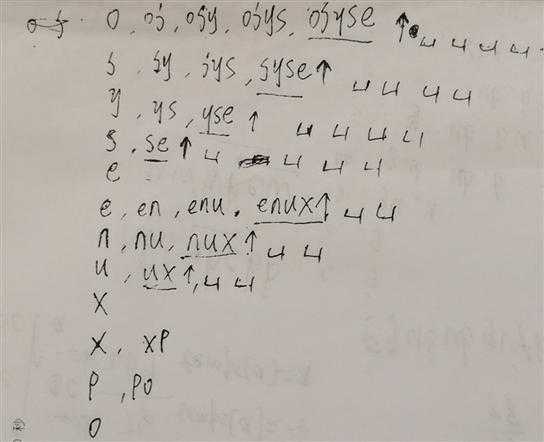 o, oj, ojy, ojys, ojyse ↑ 4 4 4 4
j, jy, jys, jyse ↑ 4 4 4 4
y, ys, yse ↑ 4 4 4 4
s, se ↑ 4 4 4 4
e
e, en, enu, enux ↑ 4 4
n, nu, nux ↑ 4 4
u, ux ↑, 4 4
x
x, xp
p, po
o